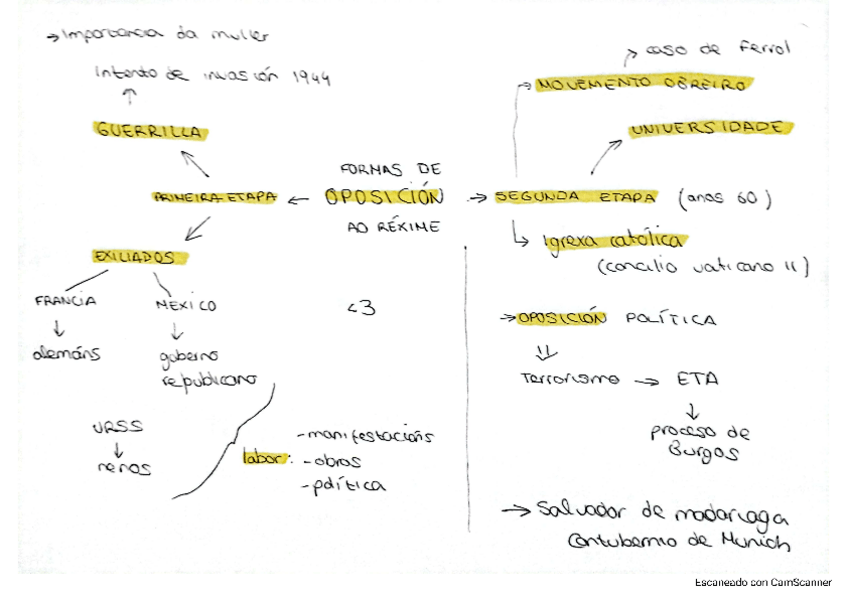 → Importancia da muller
Intento de invasión 1944
GUERRILLA
PRIMEIRA ETAPA
EXILIADOS
FRANCIA
alemáns
MEXICO
goberno
republicano
URSS
nenos
labor:
- manifestacións
- obras
- política
FORMAS DE
OPOSICIÓN
AO RÉXIME
<3
SEGUNDA ETAPA (anos 60)
MOVEMENTO OBREIRO
caso de Ferrol
UNIVERSIDADE
Igrexa católica
(concilio vaticano II)
→ OPOSICIÓN POLÍTICA
Terrorismo → ETA
proceso de
Burgos
→ Salvador de madariaga
Contubernio de Munich
Escaneado con CamScanner